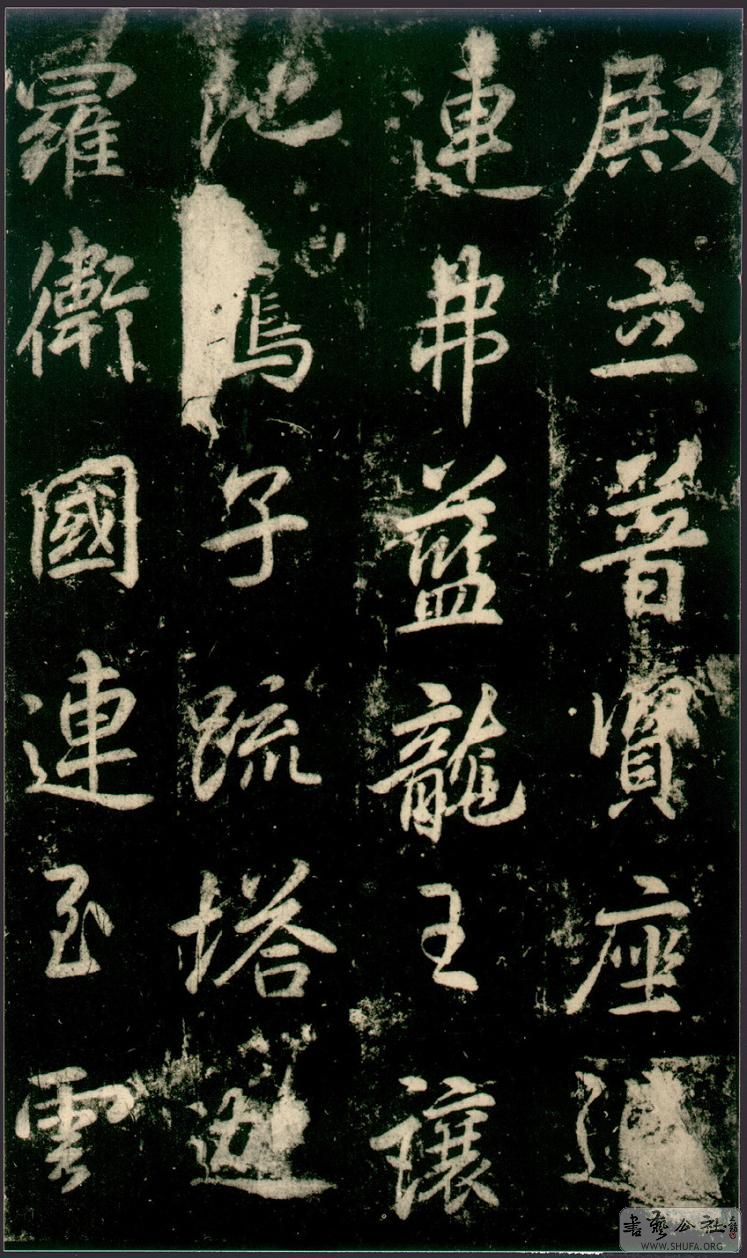 殿立普賢座
連弗藍龍王讓
池子疏塔迦
羅衛國連至雲
書藝公社
WWW.SHUFA.ORG